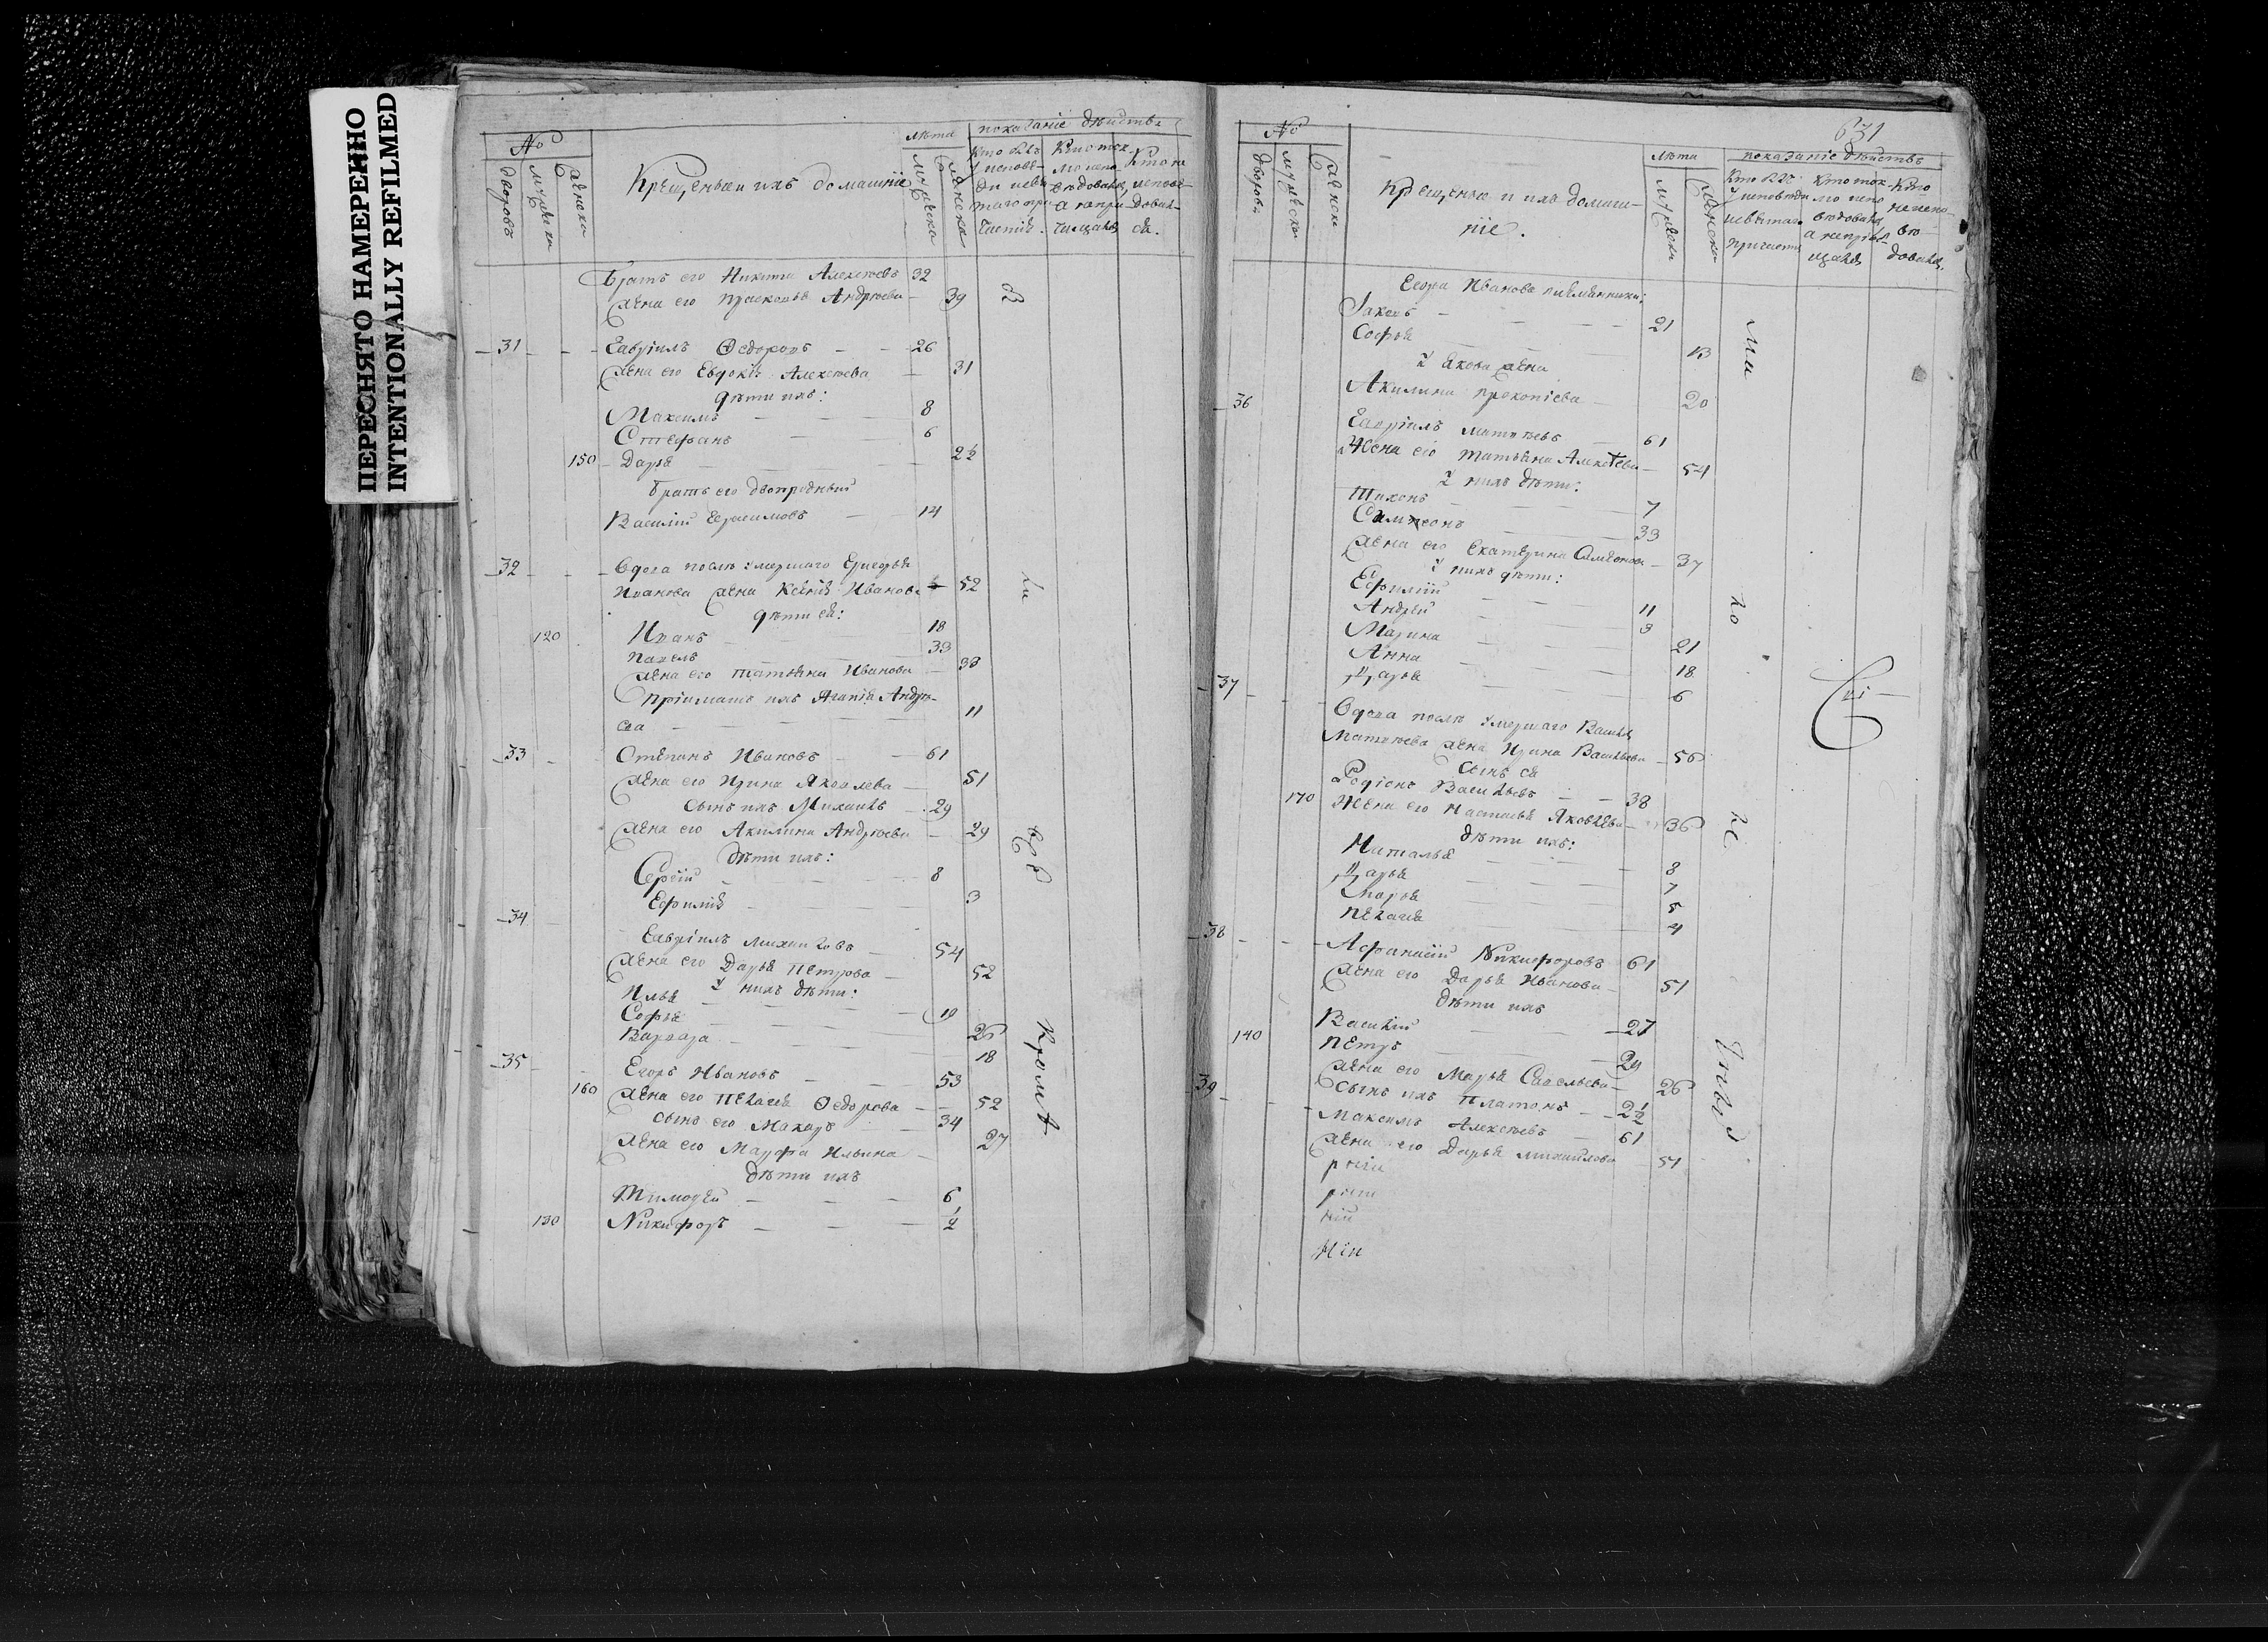 ПЕРЕСНЯТО НАМЕРЕННО
INTENTIONALLY REFILMED
№
дворовъ
мужеска
женска
Крещенные и ихъ домашніе
лѣта
мужеска
женска
показаніе дѣйства
Братъ его Никита Алексѣевъ 32
Жена его Прасковья Андрѣева 39
31 Гавріилъ Ѳедоровъ 26
Жена его Евдокія Алексѣева 31
дѣти ихъ:
Максимъ 8
Стефанъ 6
150 Дарья 2½
Братъ его двоюродный
Василій Герасимовъ 14
32 Вдова послѣ умершаго Григорья
Иванова жена Ксенія Иванова 52
дѣти ея:
120 Иванъ 18
Павелъ 33
Жена его Татьяна Иванова 33
Пріимышъ ихъ Агапія Андрѣ-
ева 11
33 Степанъ Ивановъ 61
Жена его Ирина Яковлева 51
Сынъ ихъ Михаилъ 29
Жена его Акилина Андрѣева 29
дѣти ихъ:
Сергій 8
Ефимія 3
34 Гавріилъ Михаиловъ 54
Жена его Дарья Петрова 52
у нихъ дѣти:
Илья 19
Софья 26
Варвара 18
35 Егоръ Ивановъ 53
160 Жена его Пелагея Ѳедорова 52
Сынъ его Макаръ 34
Жена его Марфа Ильина 27
дѣти ихъ
Тимоѳей 6
130 Никифоръ ½
631
№
дворовъ
мужеска
женска
Крещенные и ихъ домаш-
ніе.
лѣта
мужеска
женска
показаніе дѣйствъ
Егора Иванова племянники:
Яковъ 21
Софья 13
у Якова жена
Акилина Прокопіева 20
36
Гавріилъ Матвѣевъ 61
Жена его Татьяна Алексѣева 54
у нихъ дѣти:
Тихонъ 7
Симеонъ 33
Жена его Екатерина Симеонова 37
у нихъ дѣти:
Ефимій 11
Андрей 3
Марина 21
Анна 18
Дарья 6
37
Вдова послѣ умершаго Василья
Матвѣева жена Ирина Васильева 56
Сынъ ея
Родіонъ Васильевъ 38
170 Жена его Настасья Яковлева 36
дѣти ихъ:
Наталья 8
Дарья 7
Марья 5
Пелагея 4
38
Афанасій Никифоровъ 61
Жена его Дарья Иванова 51
дѣти ихъ
Василій 27
140 Петръ 24
Жена его Марья Савельева 26
Сынъ ихъ Платонъ 2½
39
Максимъ Алексѣевъ 61
Жена его Дарья Михаилова 54